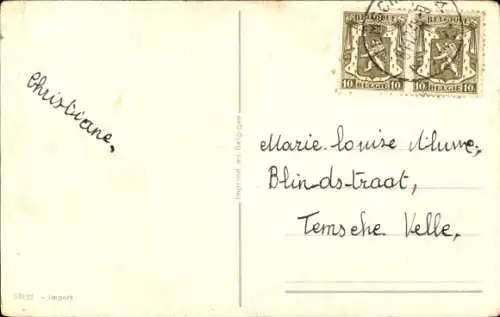 BELGIQUE BELGIQUE
10 10 10 10
BELGIE BELGIE
Christiane,
Marie-Louise
Blindstraat,
Temsche Velle,
Imprimé en Belgique
- Import